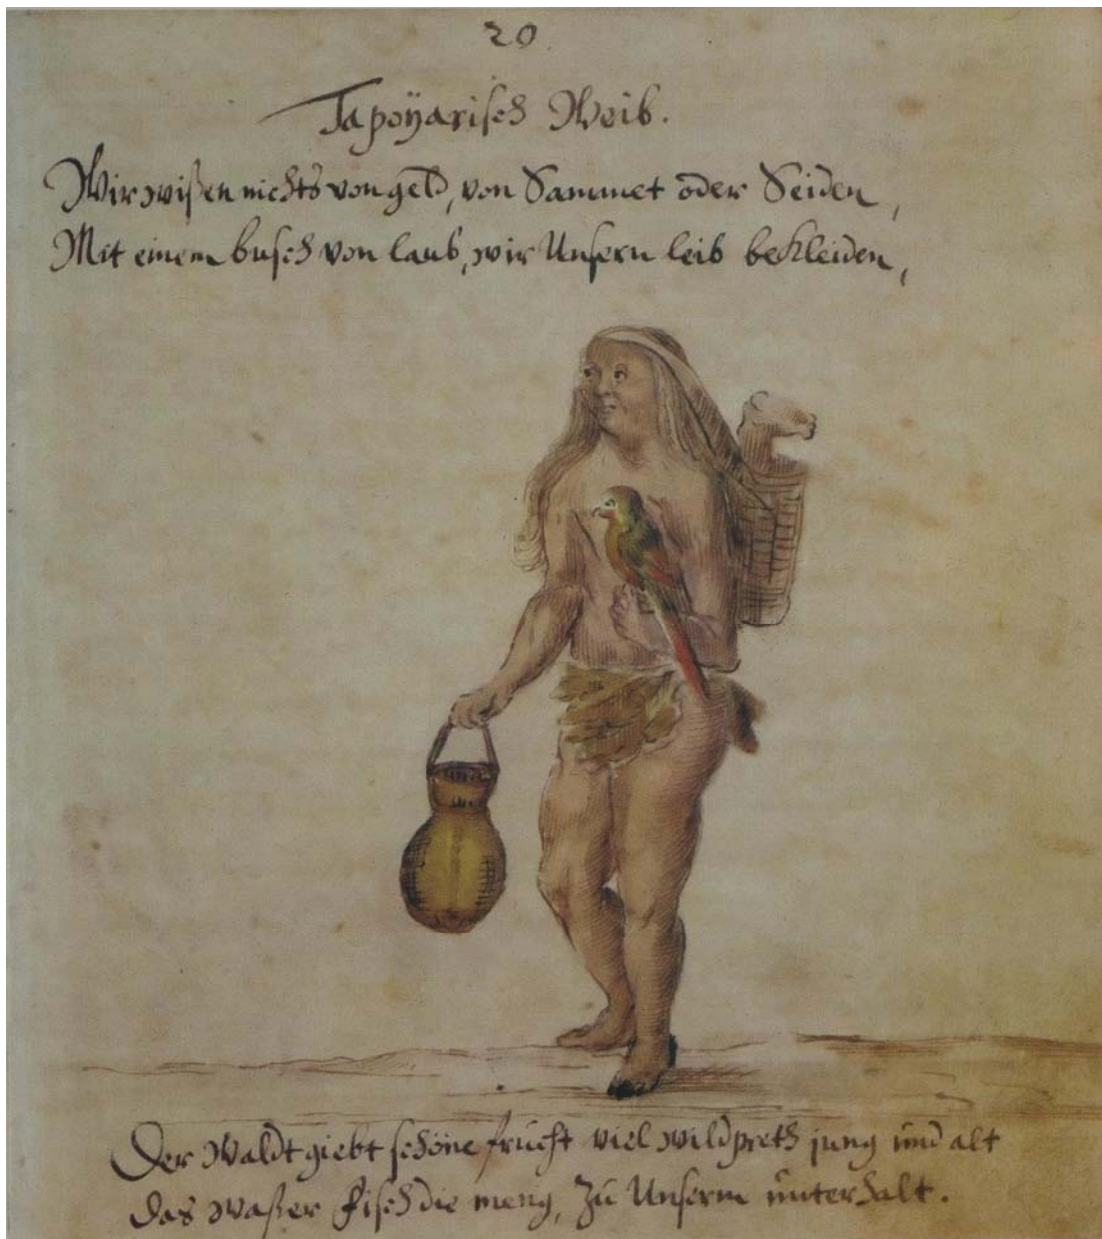 20
Tapoÿarisch Weib.
Wir wißen nichts von geld, von Sammet oder Seiden,
Mit einem busch von laub, wir Unsern leib bekleiden,
Der Waldt giebt schöne frucht viel wildpreth jung und alt
das waßer fisch die meng, zu Unserm unterhalt.